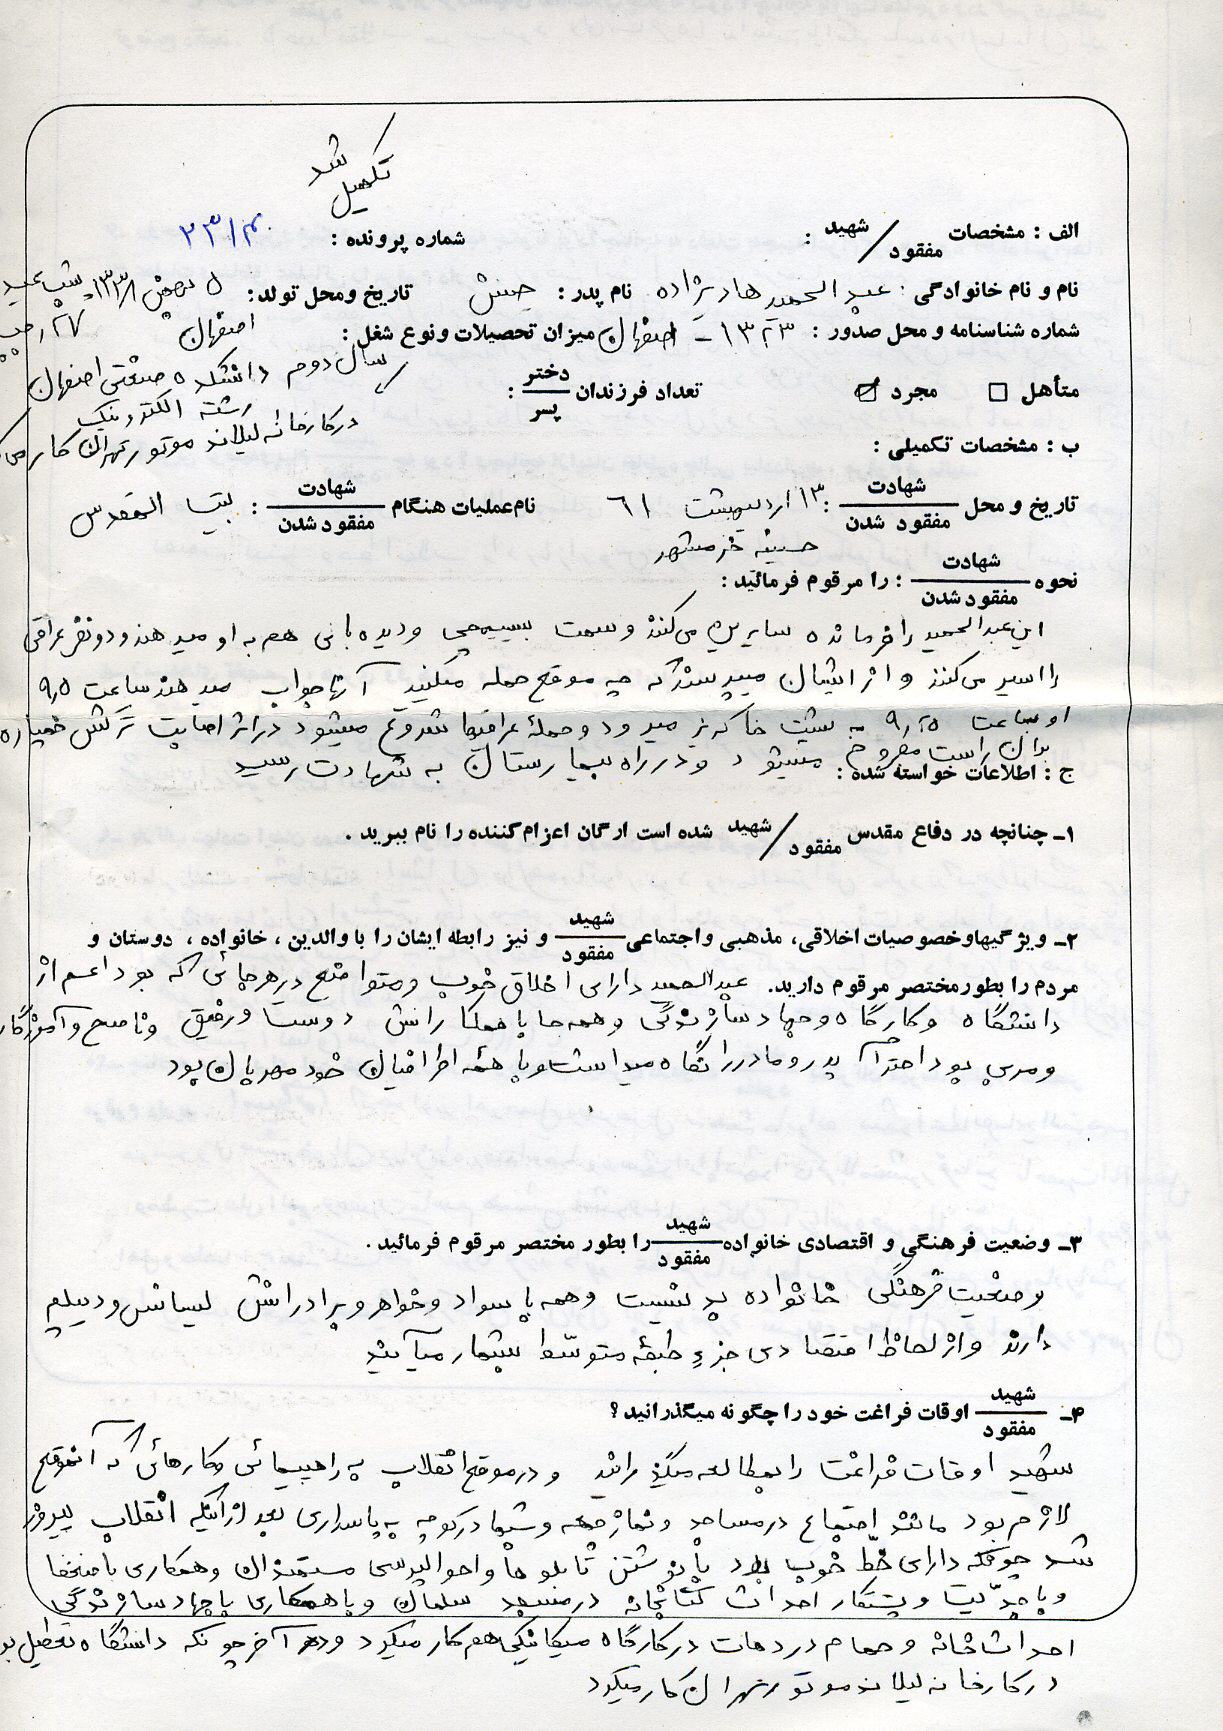 تکمیل شد
الف : مشخصات شهید / مفقود : شماره پرونده : ۲۳/۳۰
نام و نام خانوادگی : عبدالحمید هادیزاده نام پدر : حسینش تاریخ ومحل تولد : ۵ بهمن ۱۳۳۸ شب عید ۲۷ رجب اصفهان
شماره شناسنامه و محل صدور : ۱۳۲۳ - اصفهان میزان تحصیلات ونوع شغل :
سال دوم دانشکده صنعتی اصفهان
رشته الکترونیک
متأهل مجرد تعداد فرزندان دختر / پسر :
در کارخانه لیلاند موتور تهران کار می
ب : مشخصات تکمیلی :
تاریخ و محل شهادت / مفقود شدن : ۱۳ اردیبهشت ۶۱ نام عملیات هنگام شهادت / مفقود شدن : بیت المقدس
حسینه خرمشهر
نحوه شهادت / مفقود شدن : را مرقوم فرمائید :
این عبدالحمید را فرمانده سایرین می کنند و سمت بیسیمچی و دیده بانی هم به او میدهند و دو نفر عراقی
را اسیر می کنند و از ایشان میپرسند که چه موقع حمله میکنید آنها جواب میدهند ساعت ۹٫۵
او ساعت ۹٫۲۵ به پشت خاکریز میرود و حملۀ عراقیها شروع میشود در اثر اصابت ترکش خمپاره
بران راست مجروح میشود و در راه بیمارستان به شهادت رسید
ج : اطلاعات خواسته شده :
۱ـ چنانچه در دفاع مقدس شهید / مفقود شده است ارگان اعزام کننده را نام ببرید .
۲ـ ویژگیهاو خصوصیات اخلاقی، مذهبی و اجتماعی شهید / مفقود و نیز رابطه ایشان را با والدین ، خانواده ، دوستان و
مردم را بطور مختصر مرقوم دارید. عبدالحمید دارای اخلاق خوب و متواضع در هر جائی که بود اعم از
دانشگاه و کارگاه و جهاد سازندگی و همه جا با همکارانش دوست و رفیق و ناصح و آموزگار
و مربی بود احترام پدر و مادر را نگاه میداشت و با همۀ اطرافیان خود مهربان بود
۳ـ وضعیت فرهنگی و اقتصادی خانواده شهید / مفقود را بطور مختصر مرقوم فرمائید .
وضعیت فرهنگی خانواده بد نیست و همه با سواد و خواهر و برادرانش لیسانس و دیپلم
دارند و از لحاظ اقتصادی جزء طبقۀ متوسّط بشمار میآیند
۴ـ شهید / مفقود اوقات فراغت خود را چگونه میگذرانید ؟
شهید اوقات فراغت را بمطالعه میگذرانید و در موقع انقلاب به راهپیمائی و کارهائی که آنموقع
لازم بود مانند اجتماع در مساجد و نماز جمعه و شبها در کوچه به پاسداری بعد از اینکه انقلاب پیروز
شد چونکه دارای خطّ خوب بود با نوشتن تابلوها و احوالپرسی مستمندان و همکاری با ضعفا
و با جدّیت و پشتکار احداث کتابخانه در مسجد سلمان و با همکاری با جهاد سازندگی
احداث خانه و حمام در دهات در کارگاه میکانیکی هم کار میکرد و در آخر چونکه دانشگاه تعطیل بو
در کارخانه لیلاند موتور تهران کار میکرد